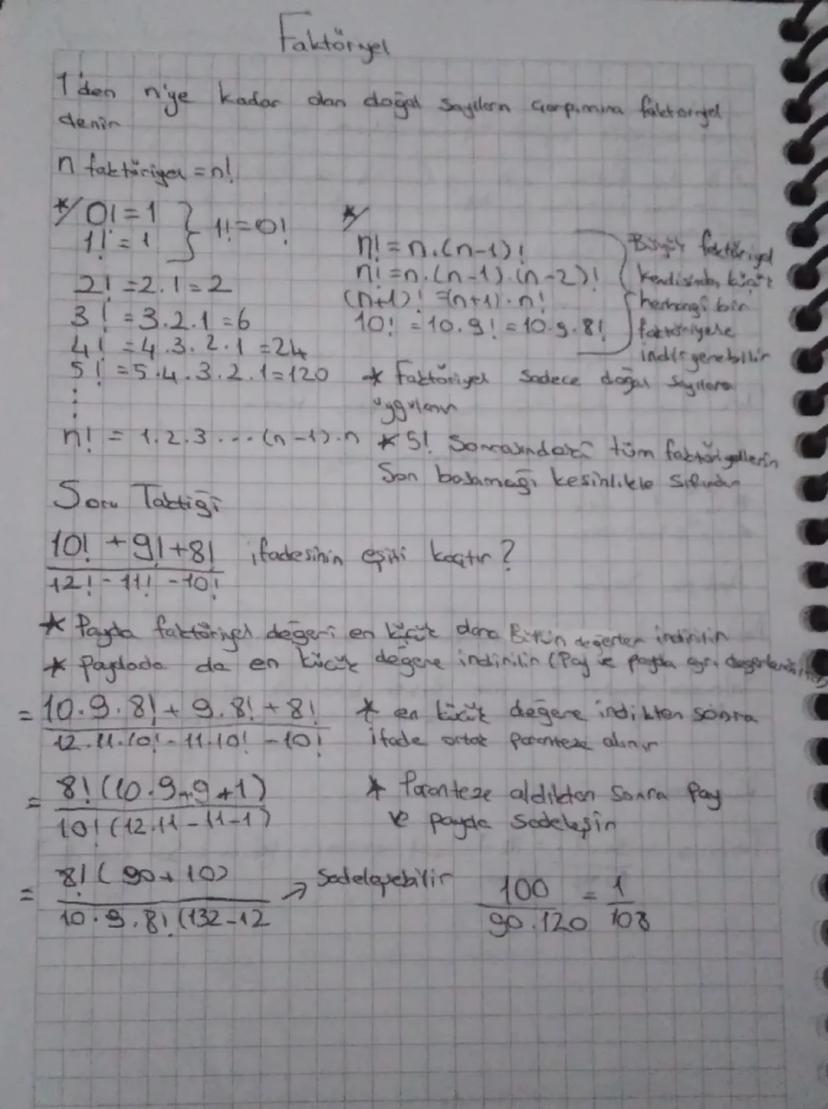 Faktöryel
1'den n'ye kadar olan doğal sayıların çarpımına faktöryel
denir
n faktöriyel = n!
*/ 0! = 1 } 1! = 0!
1! = 1
2! = 2.1 = 2
3! = 3.2.1 = 6
4! = 4.3.2.1 = 24
5! = 5.4.3.2.1 = 120
⋮
n! = 1.2.3...(n-1).n
*/
n! = n.(n-1)!
n! = n.(n-1).(n-2)!
(n+1)! = (n+1).n!
10! = 10.9! = 10.9.8!
Büyük faktöriyel
kendisinden küçük
herhangi bir
faktöriyele
indirgenebilir
* Faktöriyel sadece doğal sayılara
uygulanır
* 5! Sonrasındaki tüm faktöriyellerin
Son basamağı kesinlikle sıfırdır
Soru Taktiği
10! + 9! + 8! / 12! - 11! - 10! ifadesinin eşiti kaçtır?
* Payda faktöriyel değeri en küçük olana Bütün değerler indirilir
* Paydada da en küçük değere indirilir (Pay ve payda ayrı
= 10.9.8! + 9.8! + 8! / 12.11.10! - 11.10! - 10!
* en küçük değere indikten sonra
ifade ortak paranteze alınır
= 8!(10.9+9+1) / 10!(12.11-11-1)
* Paranteze aldıktan sonra Pay
ve payda sadeleşir
= 8!(90+10) / 10.9.8!(132-12 → Sadeleşebilir 100 / 90.120 = 1 / 108